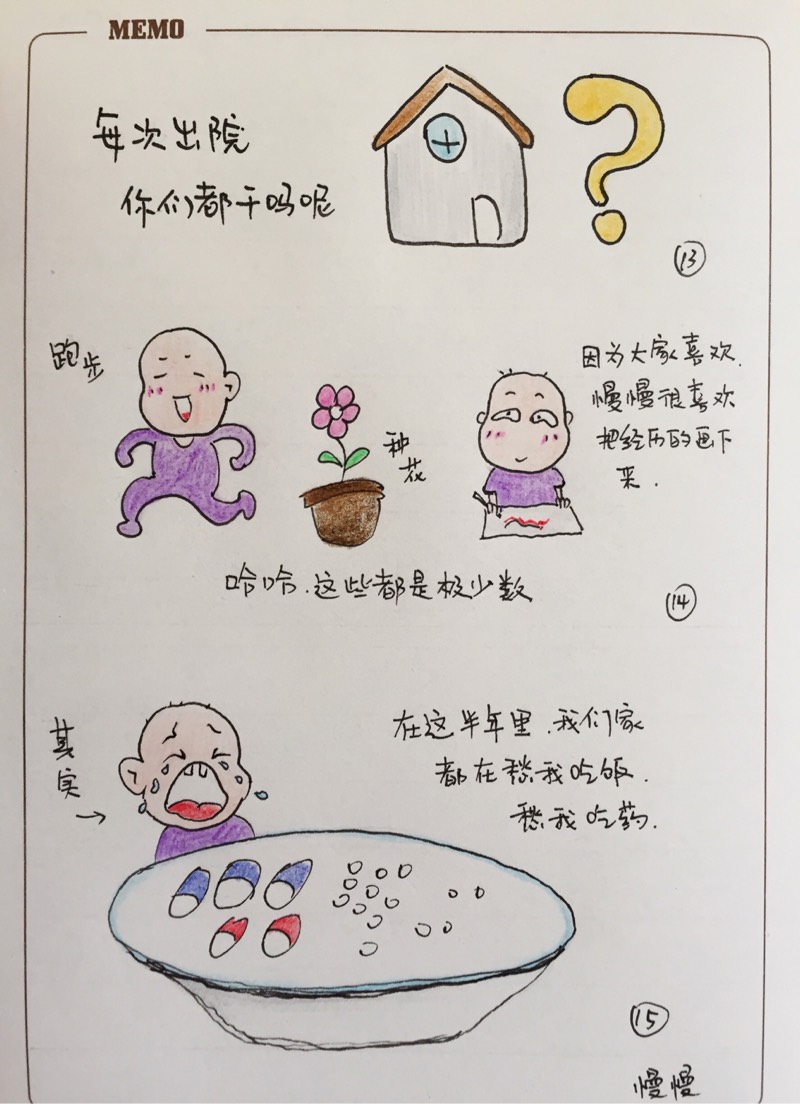 MEMO
每次出院
你们都干吗呢
13
跑步
种花
因为大家喜欢.
慢慢很喜欢
把经历的画下
来.
哈哈.这些都是极少数
14
其实
在这半年里.我们家
都在愁我吃饭.
愁我吃药.
15
慢慢